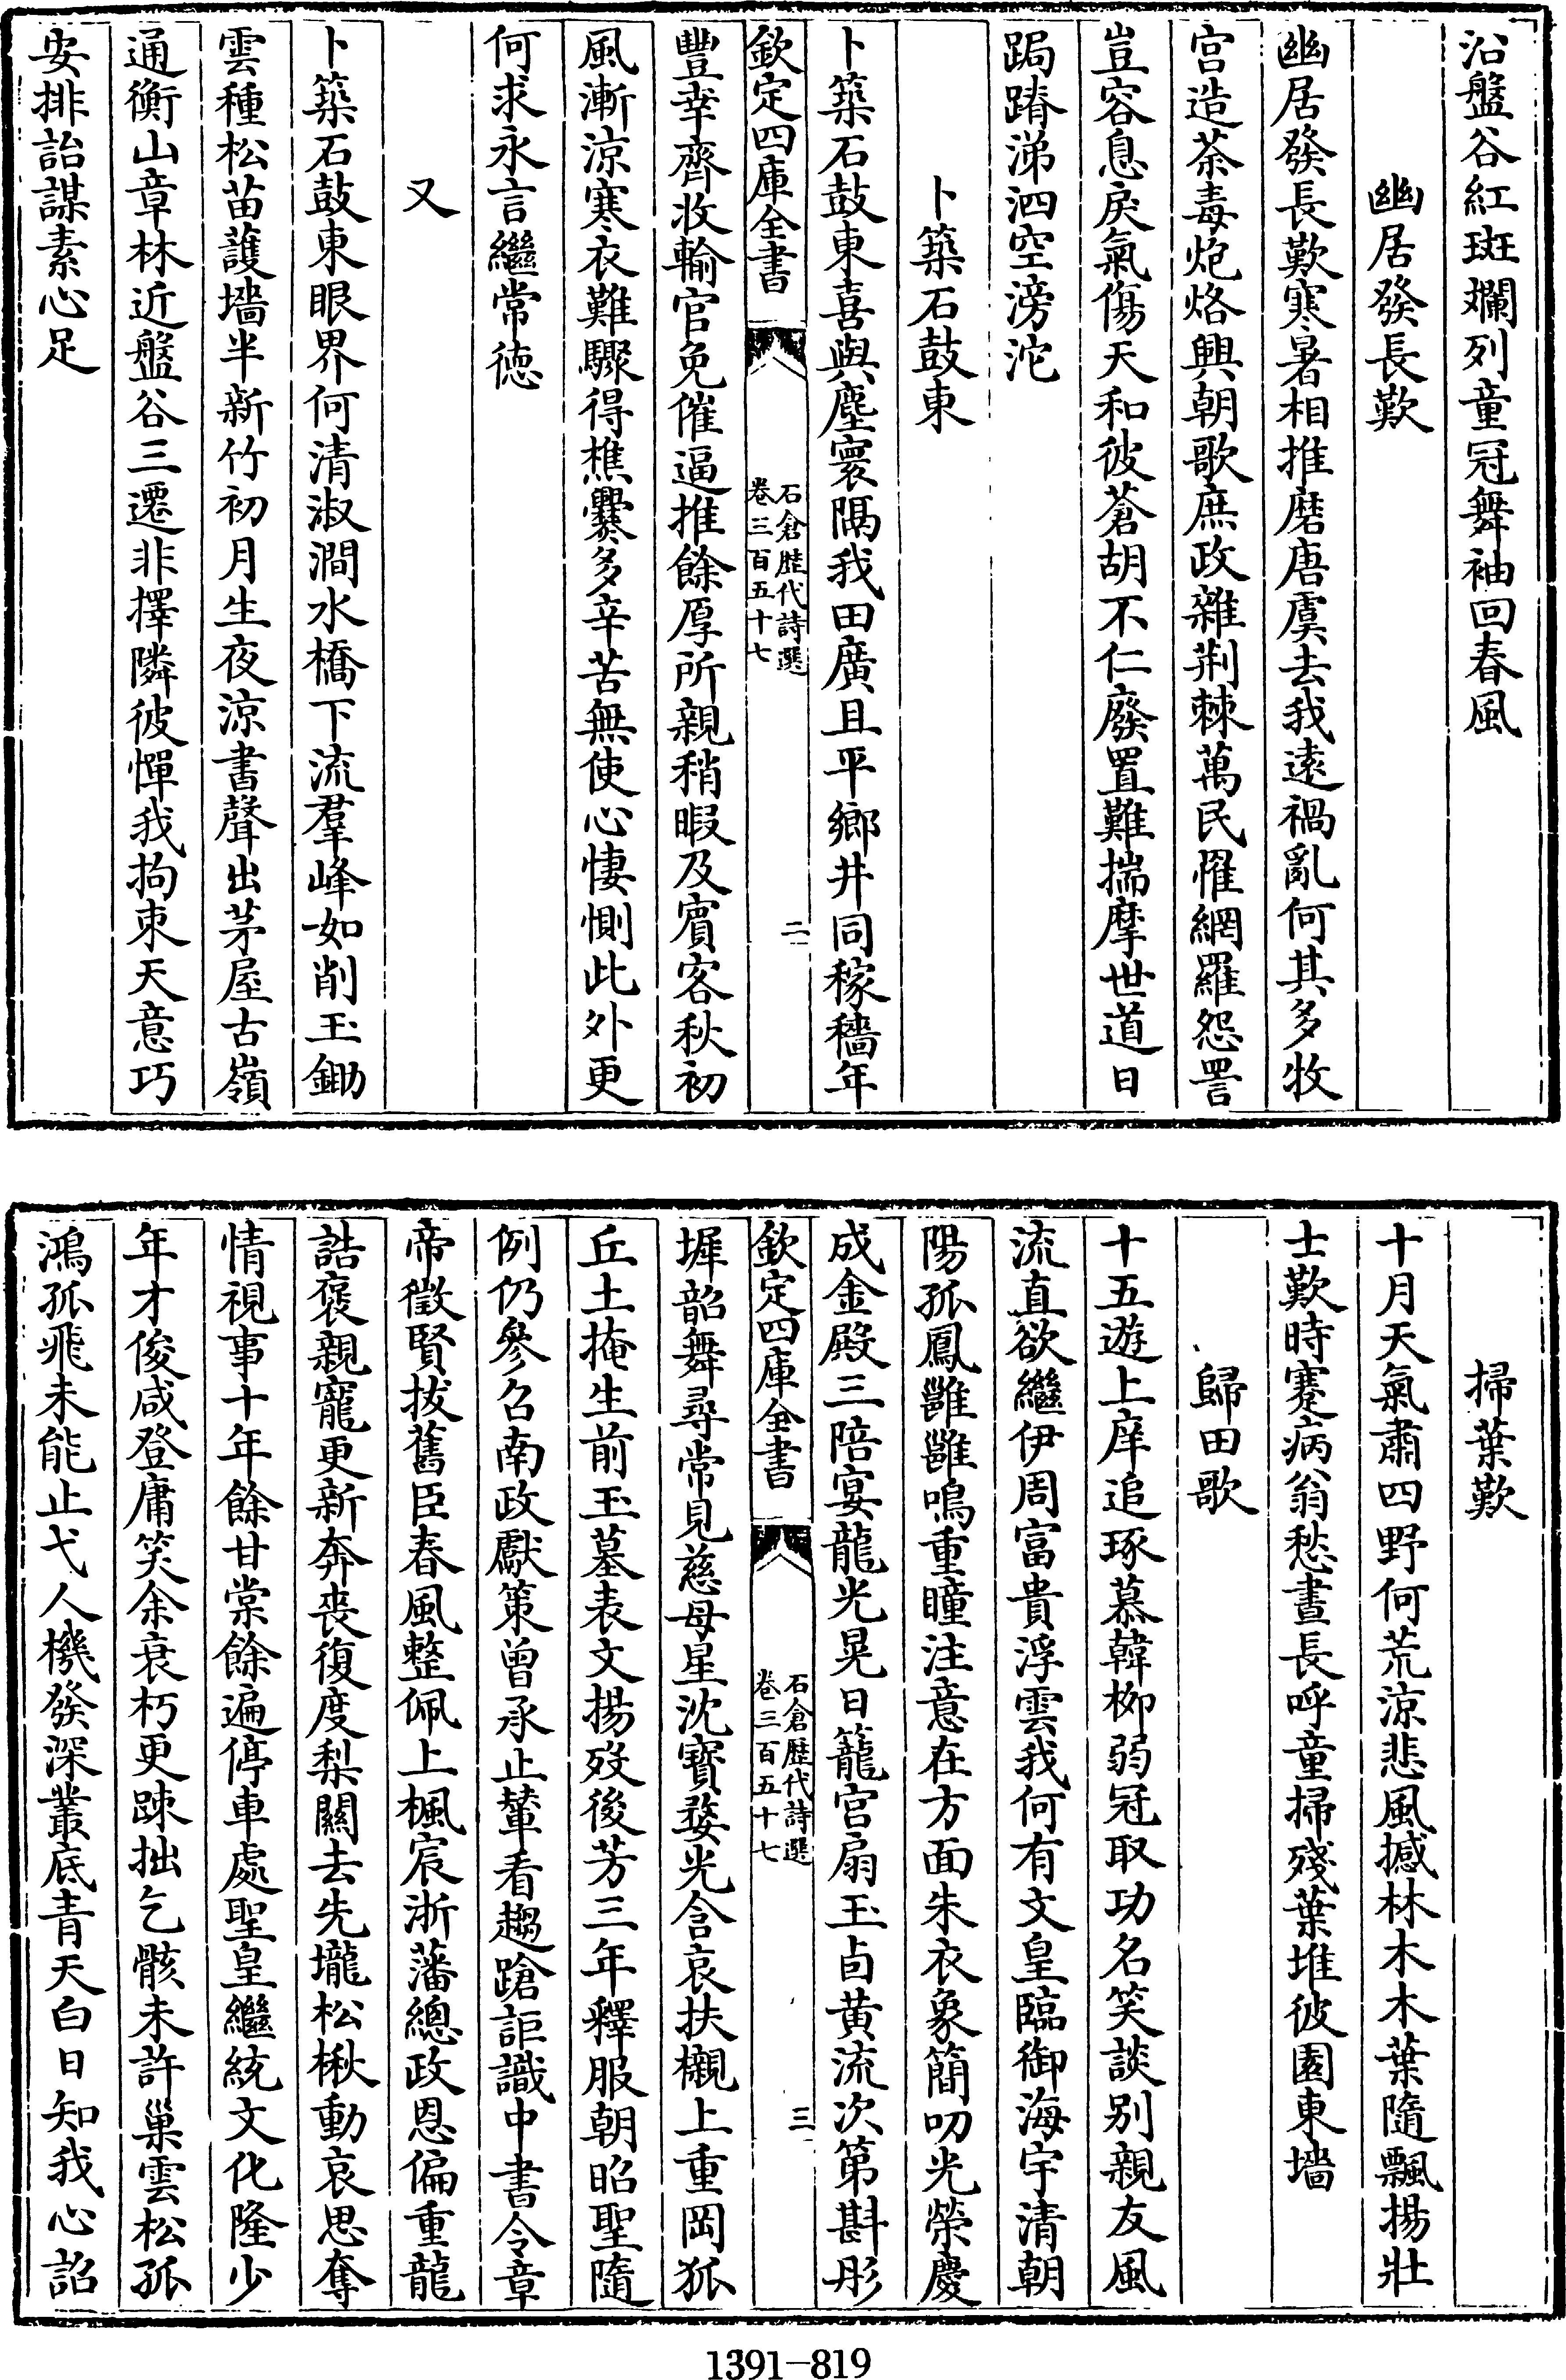 沿盤谷紅斑斕列童冠舞袖回春風
幽居發長歎
幽居發長歎寒暑相推磨唐虞去我遠禍亂何其多牧
宫造荼毒炮烙興朝歌庶政雜荆棘萬民罹網羅怨詈
豈容息戾氣傷天和彼蒼胡不仁廢置難揣摩世道日
跼蹐涕泗空滂沱
卜築石鼓東
卜築石鼓東喜與塵寰隔我田廣且平鄉井同稼穡年
欽定四庫全書
石倉歴代詩選
卷三百五十七
二
豐幸齊收輸官免催逼推餘厚所親稍暇及賓客秋初
風漸涼寒衣難驟得樵爨多辛苦無使心悽惻此外更
何求永言繼常徳
又
卜築石鼓東眼界何清淑澗水橋下流羣峰如削玉鋤
雲種松苗護墻半新竹初月生夜涼書聲出茅屋古嶺
通衡山章林近盤谷三遷非擇隣彼憚我拘束天意巧
安排詒謀素心足
掃葉歎
十月天氣肅四野何荒涼悲風撼林木木葉隨飄揚壯
士歎時蹇病翁愁晝長呼童掃殘葉堆彼園東墻
歸田歌
十五遊上庠追琢慕韓栁弱冠取功名笑談别親友風
流直欲繼伊周富貴浮雲我何有文皇臨御海宇清朝
陽孤鳳雝雝鳴重瞳注意在方面朱衣象簡叨光榮慶
成金殿三陪宴龍光晃日籠宫扇玉卣黄流次第斟彤
欽定四庫全書
石倉歴代詩選
卷三百五十七
三
墀韶舞尋常見慈母星沈寶婺光含哀扶櫬上重岡狐
丘土掩生前玉墓表文揚歿後芳三年釋服朝昭聖隨
例仍參召南政獻策曾承止輦看趨蹌詎識中書令章
帝徵賢拔舊臣春風整佩上楓宸浙藩總政恩偏重龍
誥褒親寵更新奔喪復度梨關去先壠松楸動哀思奪
情視事十年餘甘棠餘遍停車處聖皇繼統文化隆少
年才俊咸登庸笑余衰朽更踈拙乞骸未許巢雲松孤
鴻孤飛未能止弋人機發深叢底青天白日知我心詔
1391—819